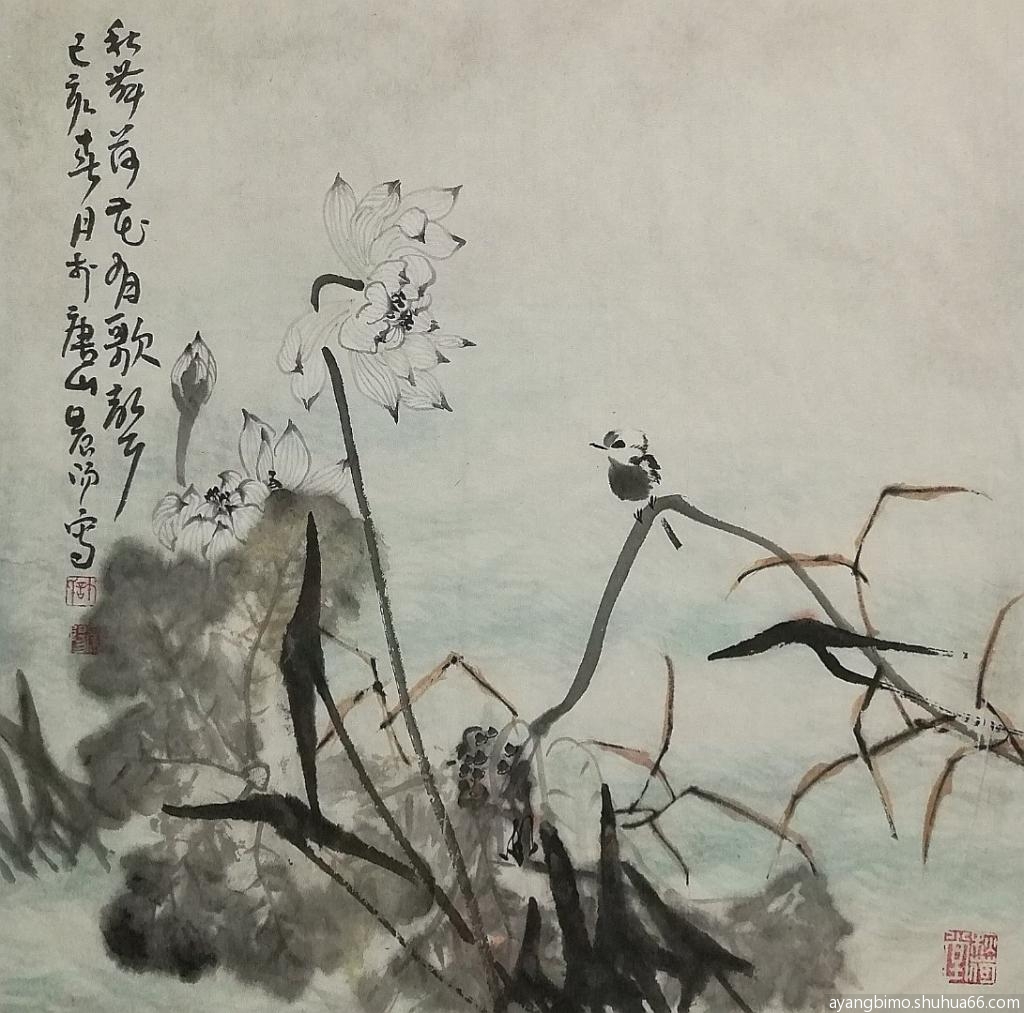 秋舞荷花有歌声
己亥春月于唐山晨阳写
ayangbimo.shuhua66.com